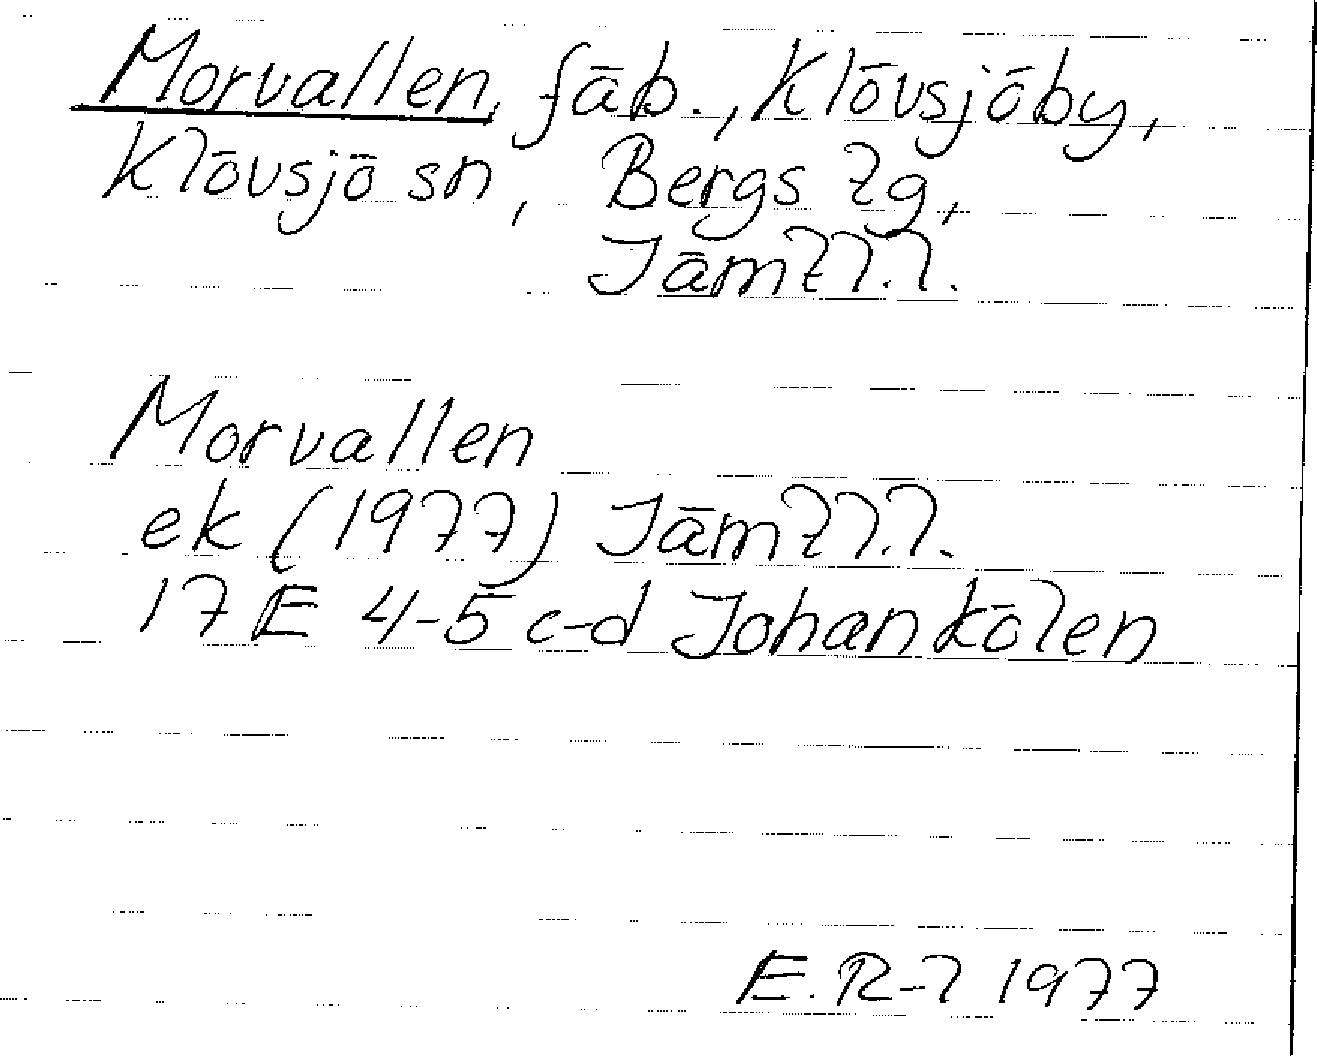 Morvallen, fäb., Klövsjöby,
Klövsjö sn, Bergs tg,
Jämtl.l.
Morvallen
ek (1977) Jämtl.l.
17E 4-5 c-d Johankölen
E.R-l 1977